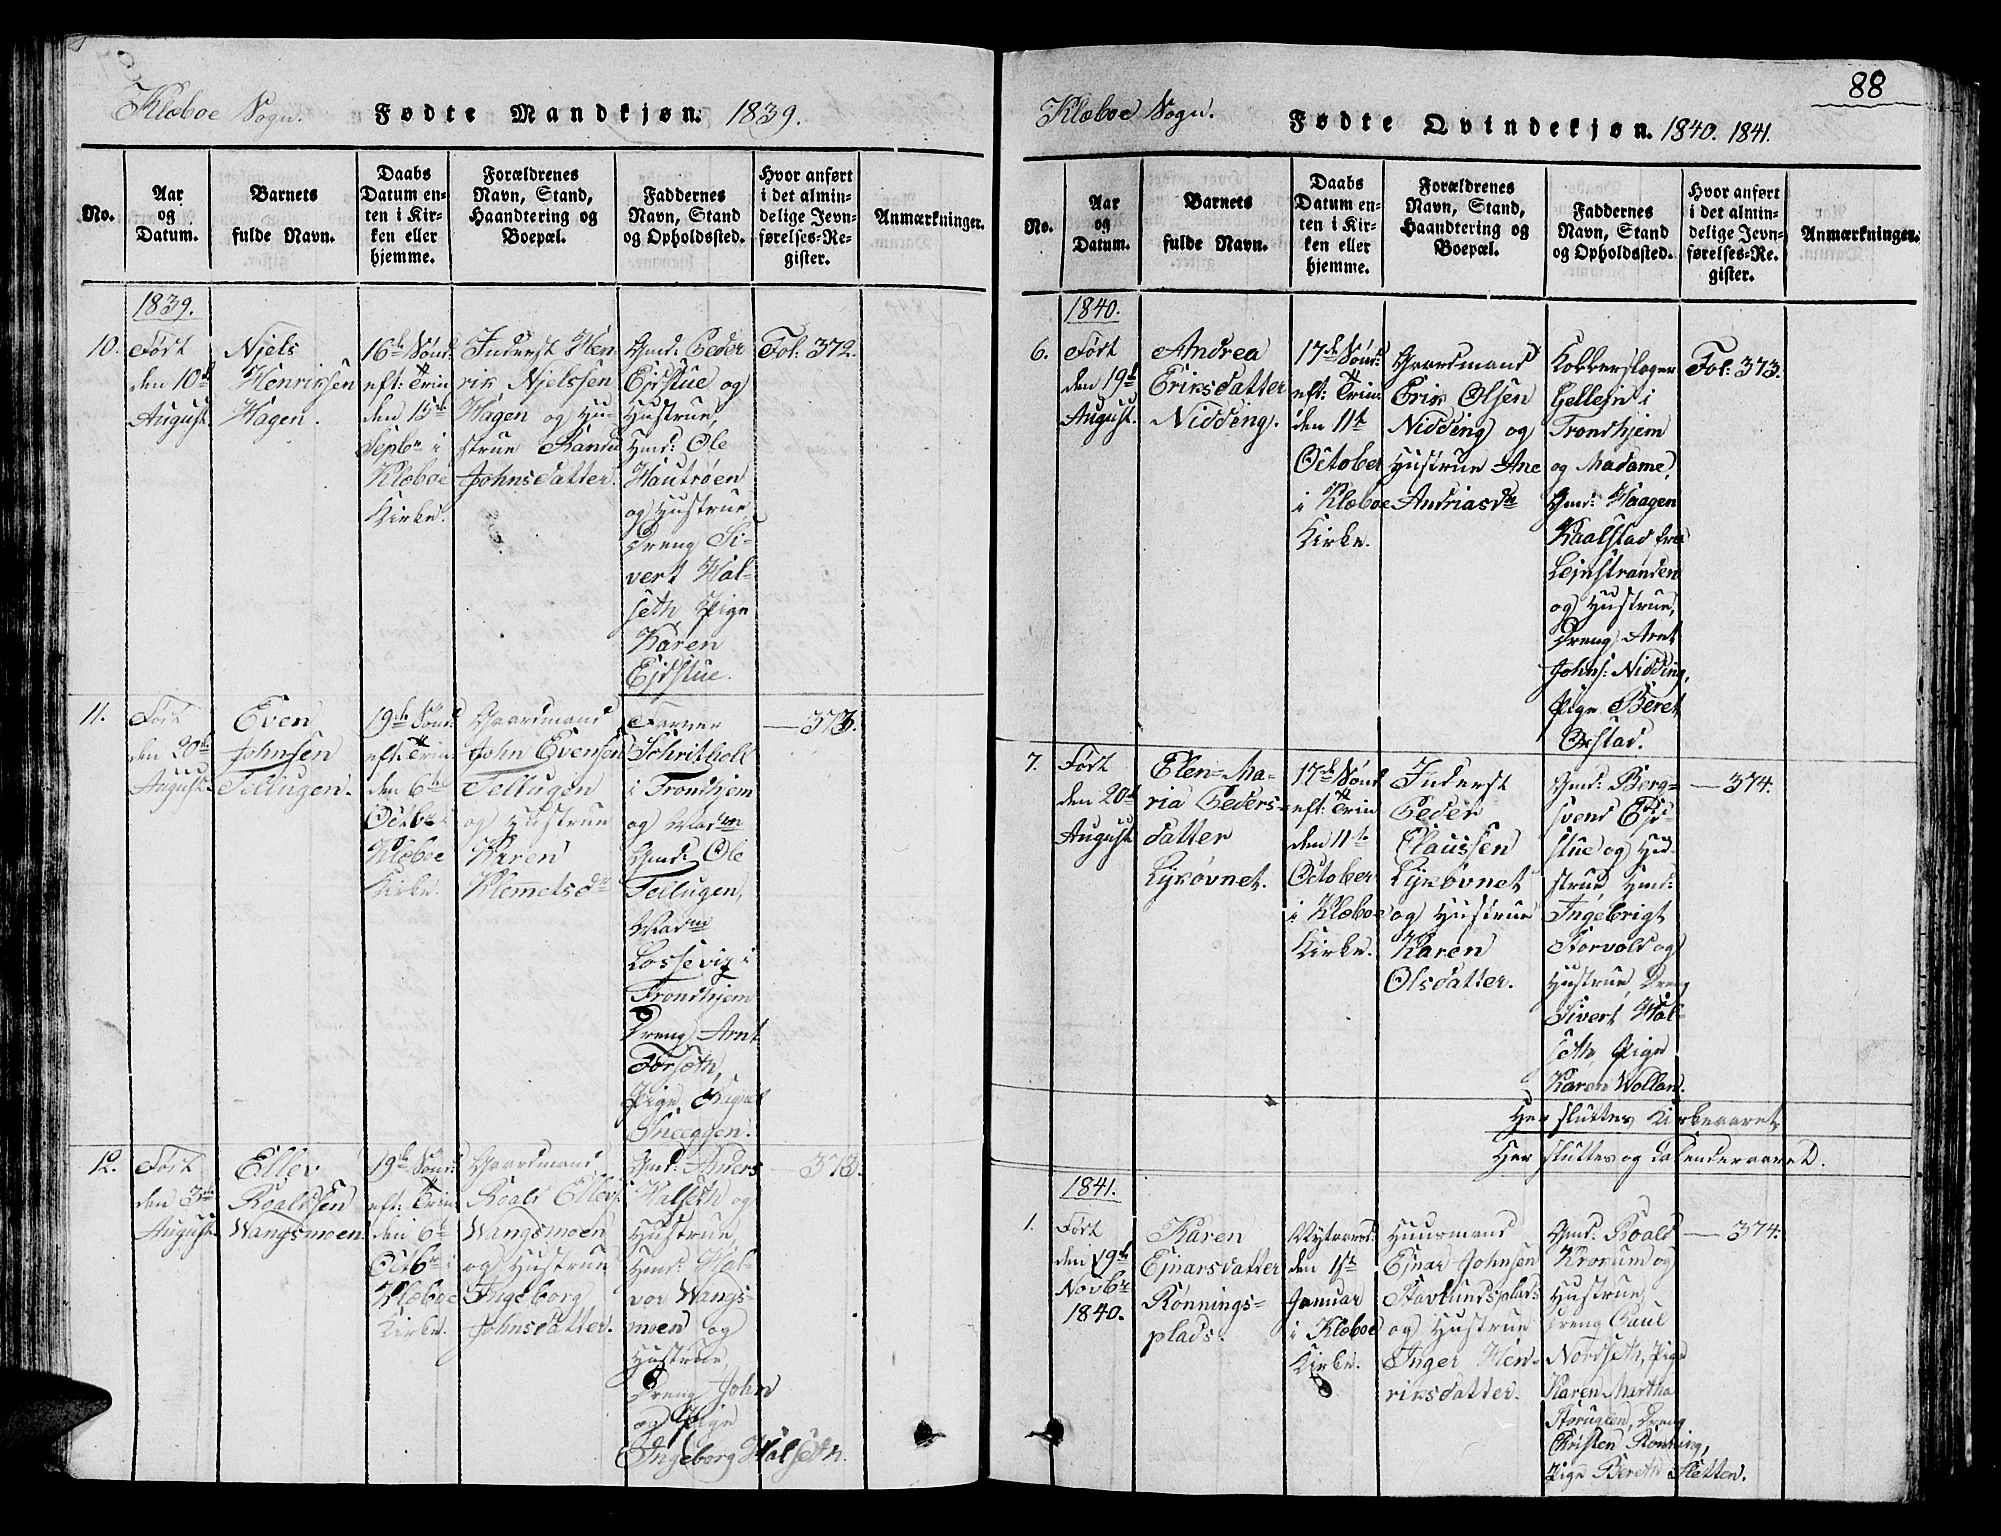 Klæboe Sogn. Fødte Mandkjøn. 1839.
No.
Aar
og
Datum.
Barnets
fulde Navn.
Daabs
Datum en-
ten i Kir-
ken eller
hjemme.
Forældrenes
Navn, Stand,
Haandtering og
Boepæl.
Faddernes
Navn, Stand
og Opholdssted.
Hvor anført
i det almin-
delige Jevn-
førelses-Re-
gister.
Anmærkninger.
1839.
10.
Født
den 10de
August
Njels
Henriksen
Hagen.
16de Sønd:
eft: Trin:
den 15de
Sepbr i
Klæboe
Kirke.
Inderst Hen-
rik Njelssen
Hagen og Hu-
strue Randi
Johnsdatter.
Gmd: Peder
Ejdstue og
Hustrue,
Hmd: Ole
Hautrøen
og Hustrue
Dreng Si-
vert Hal-
seth, Pige
Karen
Ejdstue.
Fol: 372.
11.
Født
den 20de
August
Even
Johnsen
Tellugen.
19de Sønd:
eft: Trin:
den 6te
Octbr i
Klæboe
Kirke.
Gaardmand
John Evensen
Tellugen
og Hustrue
Karen
Klemetsdr
Farver
Schritholt
i Trondhjem
og Madm
Gmd: Ole
Tellugen,
Madme
Lossevig i
Trondhjem
Dreng Arnt
Forseth,
Pige
Sneeggen.
— 373.
12.
Født
den 3die
August
Ellev
Roaldsen
Wangsmoen
19de Sønd:
eft: Trin:
den 6te
Octbr i
Klæboe
Kirke.
Gaardmand
Roald Ellevs:
Wangsmoen
og Hustrue
Ingeborg
Johnsdatter.
Gmd: Anders
Halseth og
Hustrue,
Hmd: Hal-
vor Wangs-
moen og
Hustrue,
Dreng John
og Pige
Ingeborg Halseth.
— 373.
88
Klæboe Sogn. Fødte Qvindekjøn. 1840. 1841.
No.
Aar
og
Datum.
Barnets
fulde Navn.
Daabs
Datum en-
ten i Kir-
ken eller
hjemme.
Forældrenes
Navn, Stand,
Haandtering og
Boepæl.
Faddernes
Navn, Stand
og Opholdssted.
Hvor anført
i det almin-
delige Jevn-
førelses-Re-
gister.
Anmærkninger.
1840.
6.
Født
den 19de
August.
Andrea
Eriksdatter
Nidding.
17de Sønd:
eft: Trin:
den 11te
October
i Klæboe
Kirke.
Gaardmand
Erik Olsen
Nidding og
Hustrue Ane
Andriasdr
Kobberslager
Gellein i
Trondhjem
og Madame,
Gmd: Haagen
Kaalstad fra
Lejnstranden
og Hustrue,
Dreng Arnt
Johns: Nidding,
Pige Beret
Oxstad.
Fol: 373.
7.
Født
den 20de
August
Elen-Ma-
ria Peders-
datter
Lysøvnet.
17de Sønd
eft: Trin
den 11te
October
i Klæboe
Kirke.
Inderst
Peder
Claussen
Lysøvnet
og Hustrue
Karen
Olsdatter.
Gmd: Berg-
svend Ejd-
stue og Hu-
strue, Hmd:
Ingebrigt
Storvold og
Hustrue, Dreng
Sivert Hal-
seth, Pige
Karen Wollan.
— 374.
Her sluttes Kirkeaaret,
Her sluttes og Calenderaaret.
1841.
1.
Født
den 19de
Novbr
1840.
Karen
Ejnarsdatter
Rønnings-
plads.
Nytaarsd:
den 1ste
Januar
i Klæboe
Kirke.
Huusmand
Ejnar Johnsen
Stavlundsplads
og Hustrue
Inger Hen-
riksdatter.
Gmd: Roald
Krokum og
Hustrue,
Dreng Paul
Nordseth, Pige
Karen-Martha
Storuglen, Dreng
Christen Rønning,
Pige Bereth Sletten.
— 374.